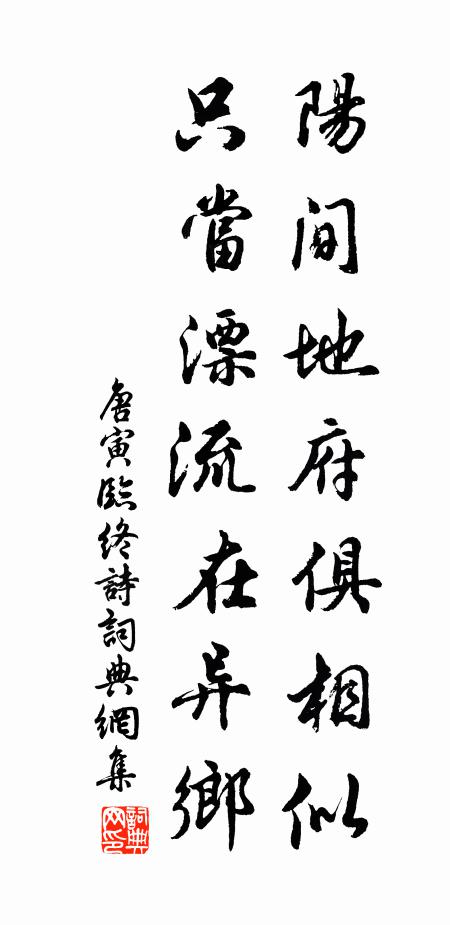 陽間地府俱相似
只當漂流在异鄉
唐寅臨終詩詞典網集
詞典网印